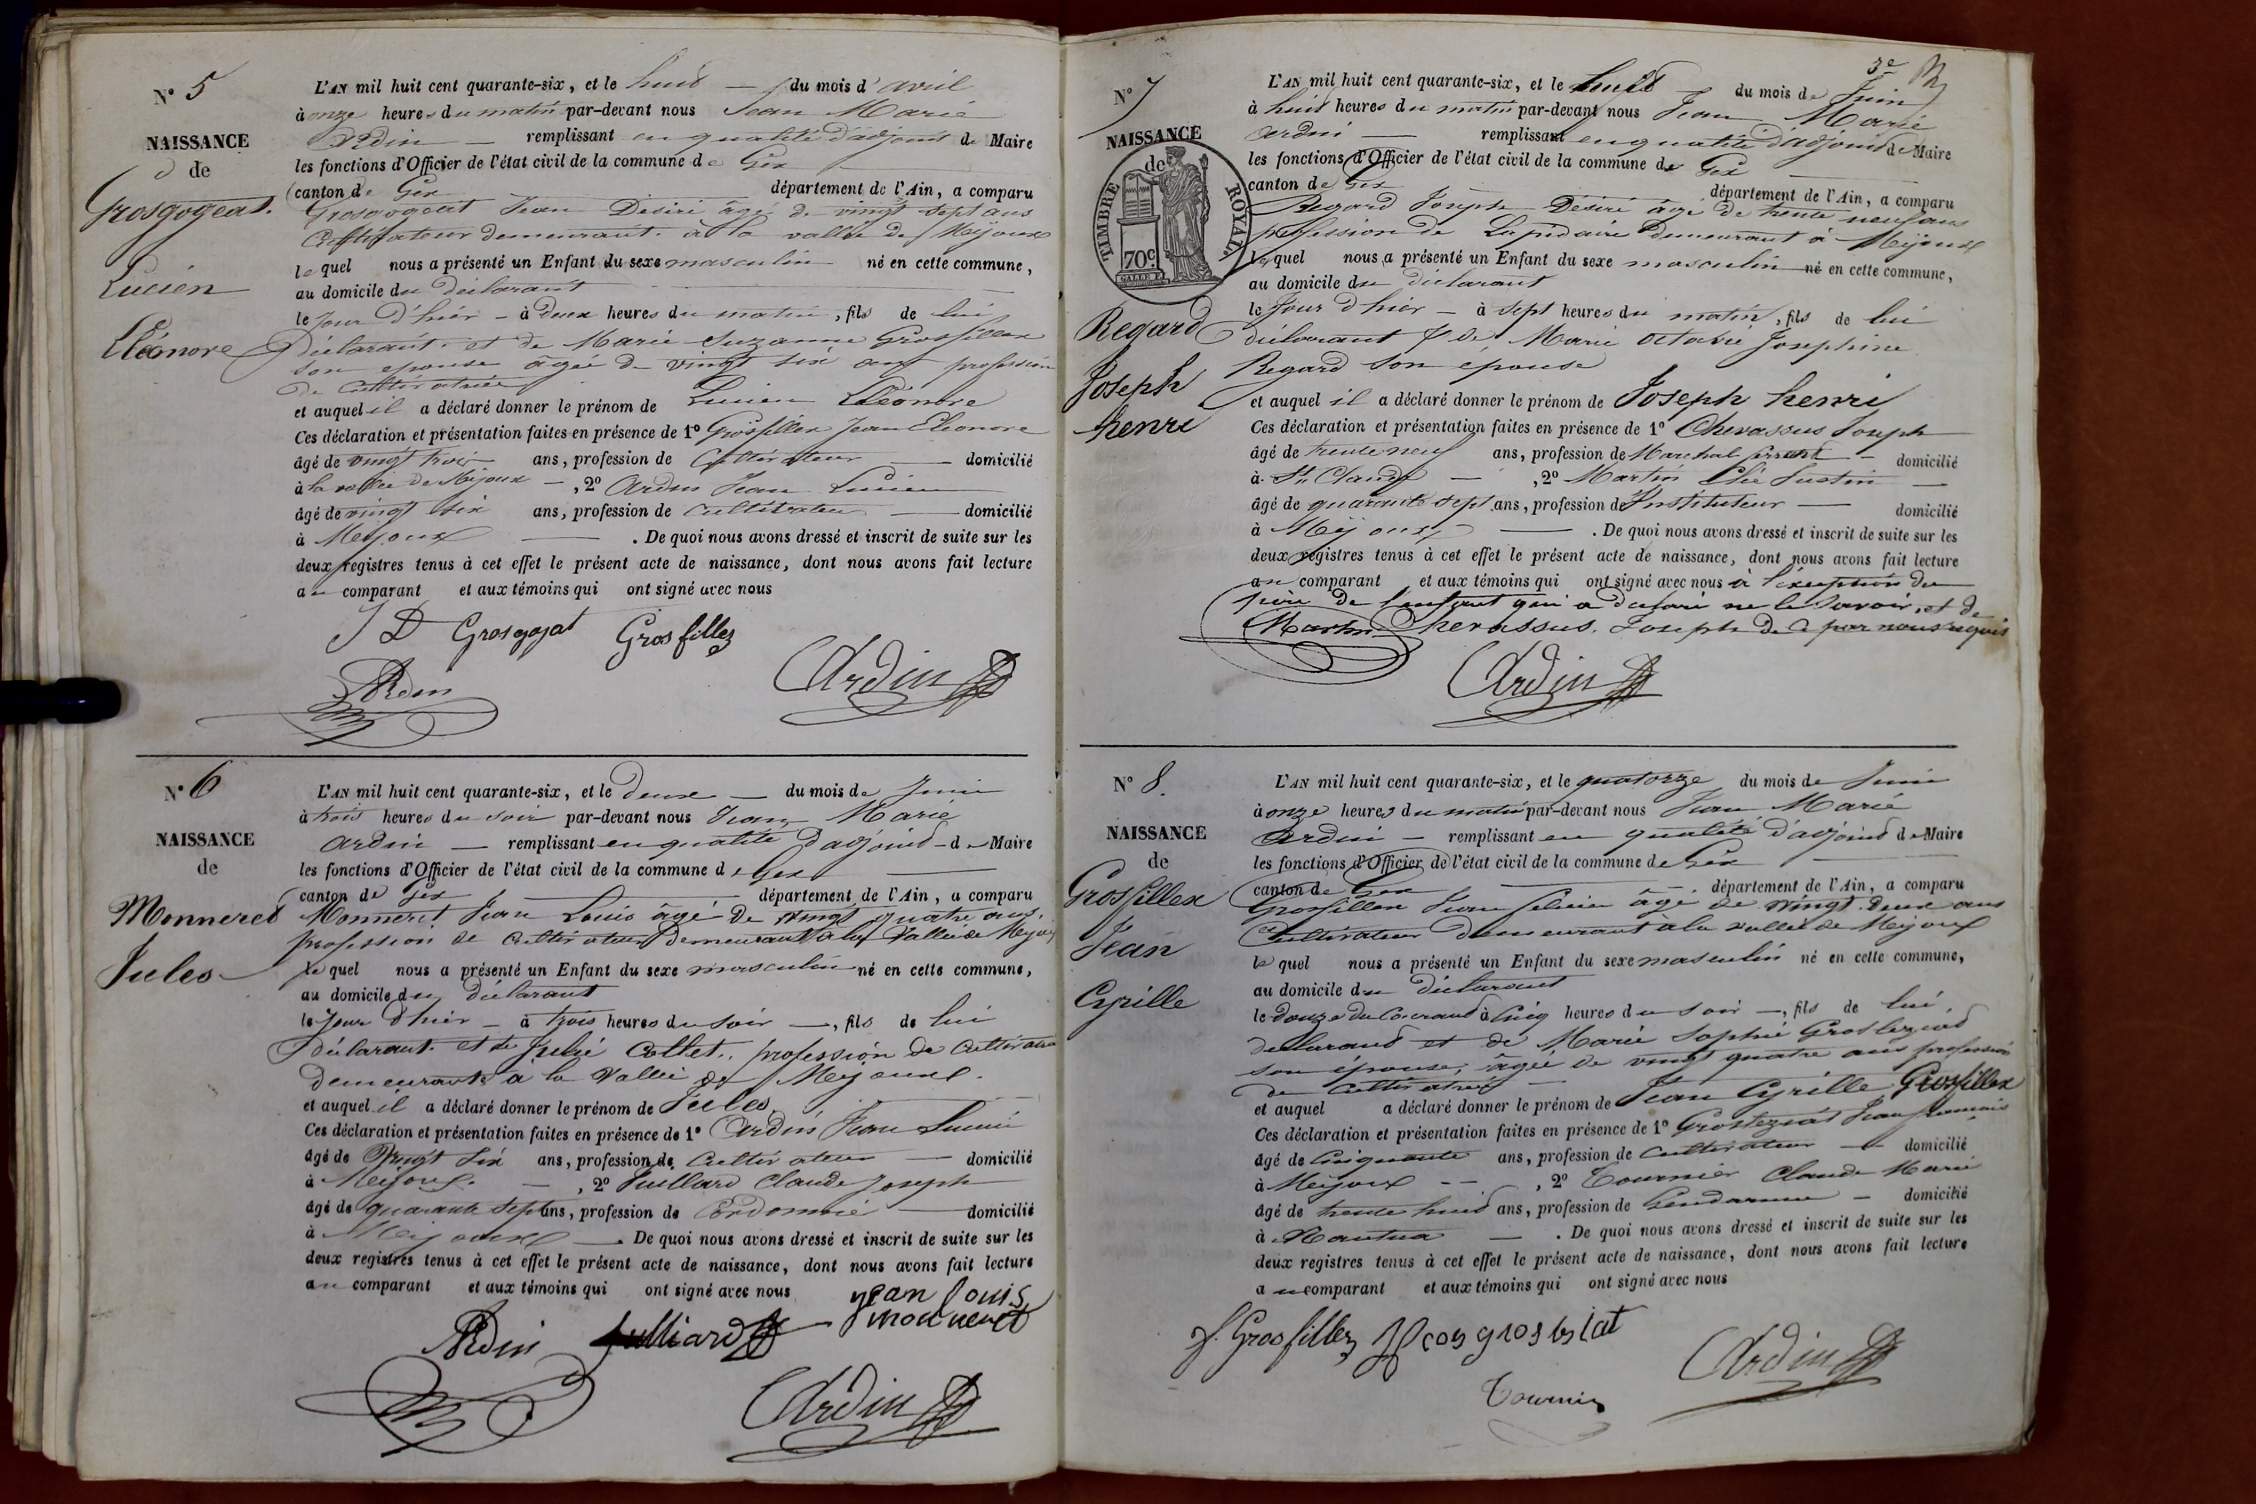 N° 5
NAISSANCE
de
Grosgogeat
Lucien
Eléonore
L'AN mil huit cent quarante-six, et le huit — du mois d'avril
à onze heures du matin par-devant nous Jean Marie
Ardin — remplissant en qualité d'adjoint de Maire
les fonctions d'Officier de l'état civil de la commune de Gex
canton de Gex département de l'Ain, a comparu
Grosgogeat Jean Desiré âgé de vingt sept ans
Cultivateur demeurant à la vallée de Mijoux
lequel nous a présenté un Enfant du sexe masculin né en cette commune,
au domicile du déclarant
le jour d'hier — à deux heures du matin, fils de lui
déclarant et de Marie Suzanne Grosfillex
son epouse âgée de vingt six ans profession
de cultivatrice
et auquel il a déclaré donner le prénom de Lucien Eléonore
Ces déclaration et présentation faites en présence de 1° Grosfillex Jean Eléonore
âgé de vingt trois ans, profession de Cultivateur — domicilié
à la vallée de Mijoux —, 2° Ardin Jean Lucien
âgé de vingt six ans, profession de cultivateur — domicilié
à Meijoux — . De quoi nous avons dressé et inscrit de suite sur les
deux registres tenus à cet effet le présent acte de naissance, dont nous avons fait lecture
au comparant et aux témoins qui ont signé avec nous
J D Grosgojat Grosfillex
Ardin Ardin
N° 6
NAISSANCE
de
Monneret
Jules
L'AN mil huit cent quarante-six, et le deux — du mois de Juin
à trois heures du soir par-devant nous Jean Marie
Ardin — remplissant en qualité d'adjoint de Maire
les fonctions d'Officier de l'état civil de la commune de Gex
canton de Gex — département de l'Ain, a comparu
Monneret Jean Louis âgé de vingt quatre ans,
profession de cultivateur demeurant à la Vallée de Meijoux
lequel nous a présenté un Enfant du sexe masculin né en cette commune,
au domicile du déclarant
le jour d'hier — à trois heures du soir —, fils de lui
déclarant et de Julie Collet, profession de cultivatrice
demeurante à la Vallée de Meijoux.
et auquel il a déclaré donner le prénom de Jules
Ces déclaration et présentation faites en présence de 1° Ardin Jean Lucien
âgé de vingt six ans, profession de Cultivateur — domicilié
à Meijoux — , 2° Juillard Claude Joseph
âgé de quarante sept ans, profession de Cordonnié — domicilié
à Meijoux — De quoi nous avons dressé et inscrit de suite sur les
deux registres tenus à cet effet le présent acte de naissance, dont nous avons fait lecture
au comparant et aux témoins qui ont signé avec nous jean louis
monneret
Ardin Julliard
Ardin
3e
N° 7
NAISSANCE
de
TIMBRE ROYAL
70c
Regard
Joseph
henri
L'AN mil huit cent quarante-six, et le huit du mois de Juin
à huit heures du matin par-devant nous Jean Marie
Ardin — remplissant en qualité d'adjoint de Maire
les fonctions d'Officier de l'état civil de la commune de Gex
canton de Gex département de l'Ain, a comparu
Regard Joseph Désiré âgé de trente neuf ans
profession de Lapidaire demeurant à Meijoux
lequel nous a présenté un Enfant du sexe masculin né en cette commune,
au domicile du déclarant
le jour d'hier — à sept heures du matin, fils de lui
déclarant & de Marie Octavie Josephine
Regard son épouse
et auquel il a déclaré donner le prénom de Joseph henri
Ces déclaration et présentation faites en présence de 1° Chevassus Joseph
âgé de trente neuf ans, profession de Marechal ferrant — domicilié
à St Claude — , 2° Martin Elie Justin —
âgé de quarante sept ans, profession de Instituteur — domicilié
à Meijoux — . De quoi nous avons dressé et inscrit de suite sur les
deux registres tenus à cet effet le présent acte de naissance, dont nous avons fait lecture
au comparant et aux témoins qui ont signé avec nous à l'exception du
père de l'enfant qui a déclaré ne le savoir, et de
Martin Chevassus Joseph de ce par nous requis
Ardin
N° 8.
NAISSANCE
de
Grosfillex
Jean
Cyrille
L'AN mil huit cent quarante-six, et le quatorze du mois de Juin
à onze heures du matin par-devant nous Jean Marie
Ardin — remplissant en qualité d'adjoint de Maire
les fonctions d'Officier de l'état civil de la commune de Gex
canton de Gex département de l'Ain, a comparu
Grosfillex Jean felicien âgé de vingt deux ans
Cultivateur demeurant à la vallée de Meijoux
lequel nous a présenté un Enfant du sexe masculin né en cette commune,
au domicile du déclarant
le douze du Courant à Cinq heures du soir —, fils de lui,
déclarant et de Marie Sophie Grostezias
son épouse, âgée de vingt quatre ans profession
de cultivatrice
et auquel a déclaré donner le prénom de Jean Cyrille Grosfillex
Ces déclaration et présentation faites en présence de 1° Grosteziat Jean francois
âgé de Cinquante ans, profession de cultivateur — domicilié
à Meijoux -- , 2° Tournier Claude Marie
âgé de trente huit ans, profession de Gendarme — domicilié
à Nantua — . De quoi nous avons dressé et inscrit de suite sur les
deux registres tenus à cet effet le présent acte de naissance, dont nous avons fait lecture
au comparant et aux témoins qui ont signé avec nous
f. Grosfillex
Tournier Ardin